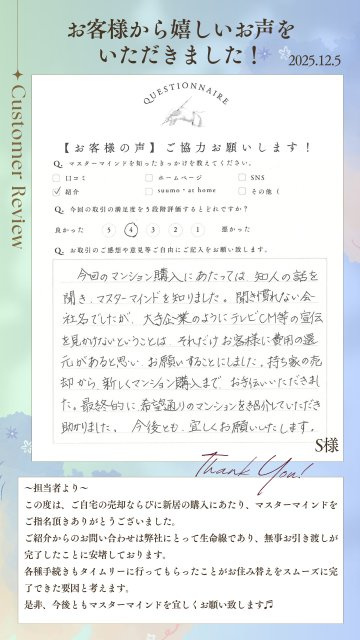 お客様から嬉しいお声を
いただきました！
2025.12.5
Customer Review
QUESTIONNAIRE
【お客様の声】ご協力お願いします！
Q. マスターマインドを知ったきっかけを教えてください。
□ 口コミ □ ホームページ □ SNS
☑ 紹介 □ suumo・at home □ その他（
Q. 今回の取引の満足度を5段階評価するとどれですか？
良かった 5 4 3 2 1 悪かった
Q. お取引のご感想や意見等ご自由にご記入をお願い致します。
今回のマンション購入にあたっては、知人の話を
聞き、マスターマインドを知りました。聞き慣れない会
社名でしたが、大手企業のようにテレビCM等の宣伝
を見かけないということは、それだけお客様に費用の還
元があると思い、お願いすることにしました。持ち家の売
却から、新しくマンション購入まで、お手伝いいただきまし
た。最終的に、希望通りのマンションを紹介していただき
助かりました。今後とも、宜しくお願いいたします。
S様
Thank You!
～担当者より～
この度は、ご自宅の売却ならびに新居の購入にあたり、マスターマインドを
ご指名頂きありがとうございました。
ご紹介からのお問い合わせは弊社にとって生命線であり、無事お引き渡しが
完了したことに安堵しております。
各種手続きもタイムリーに行ってもらったことがお住み替えをスムーズに完
了できた要因と考えます。
是非、今後ともマスターマインドを宜しくお願い致します♫